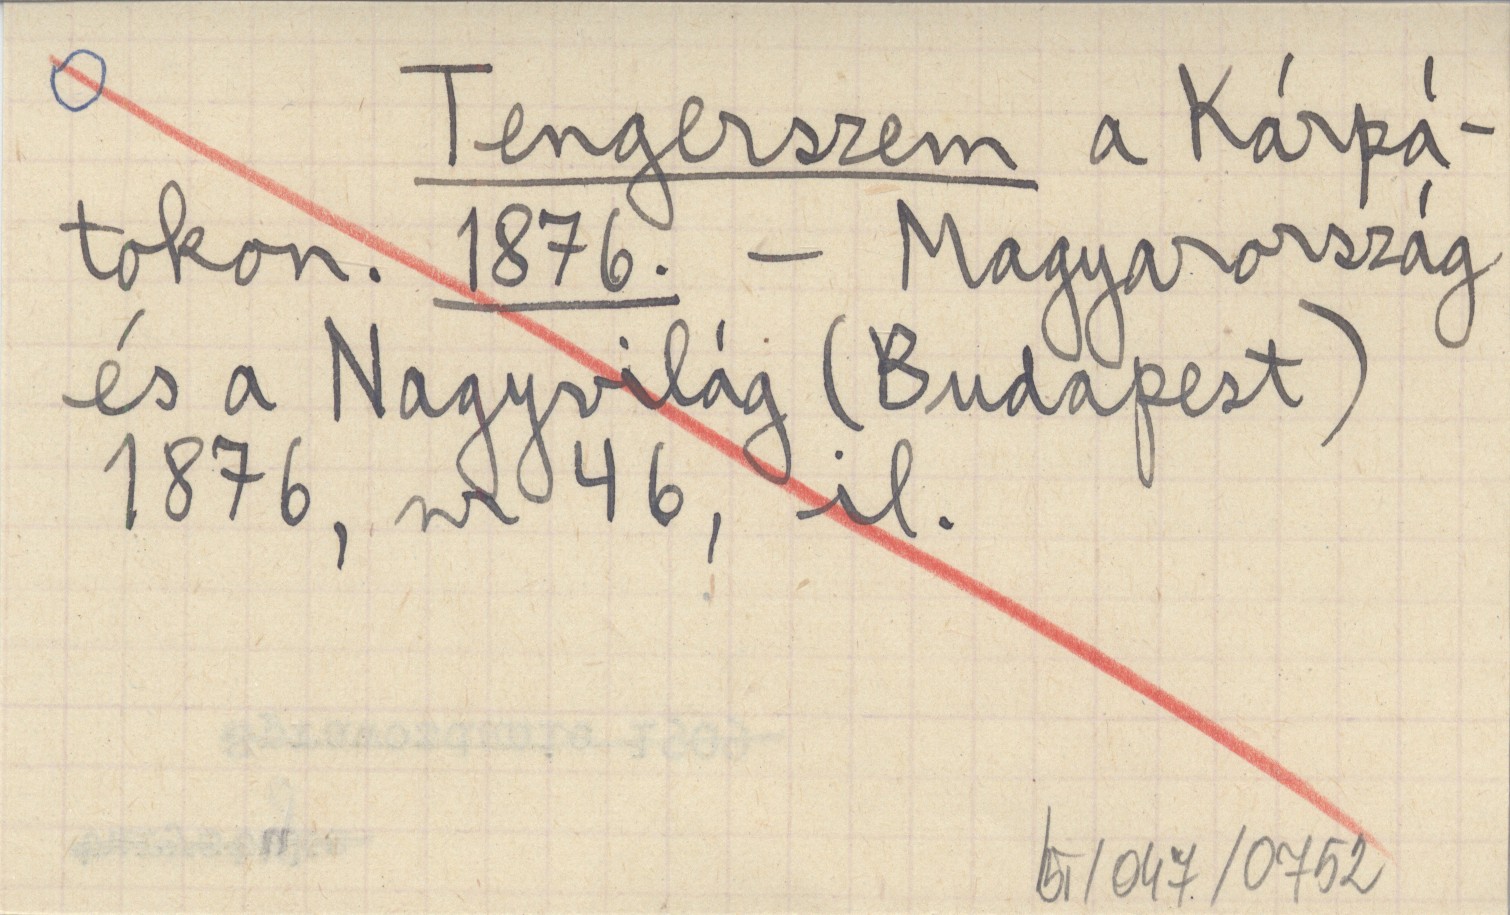 Tengerszem a Kárpá-
tokon. 1876. – Magyarország
és a Nagyvilág (Budapest)
1876, nr 46, il.
/047/0752